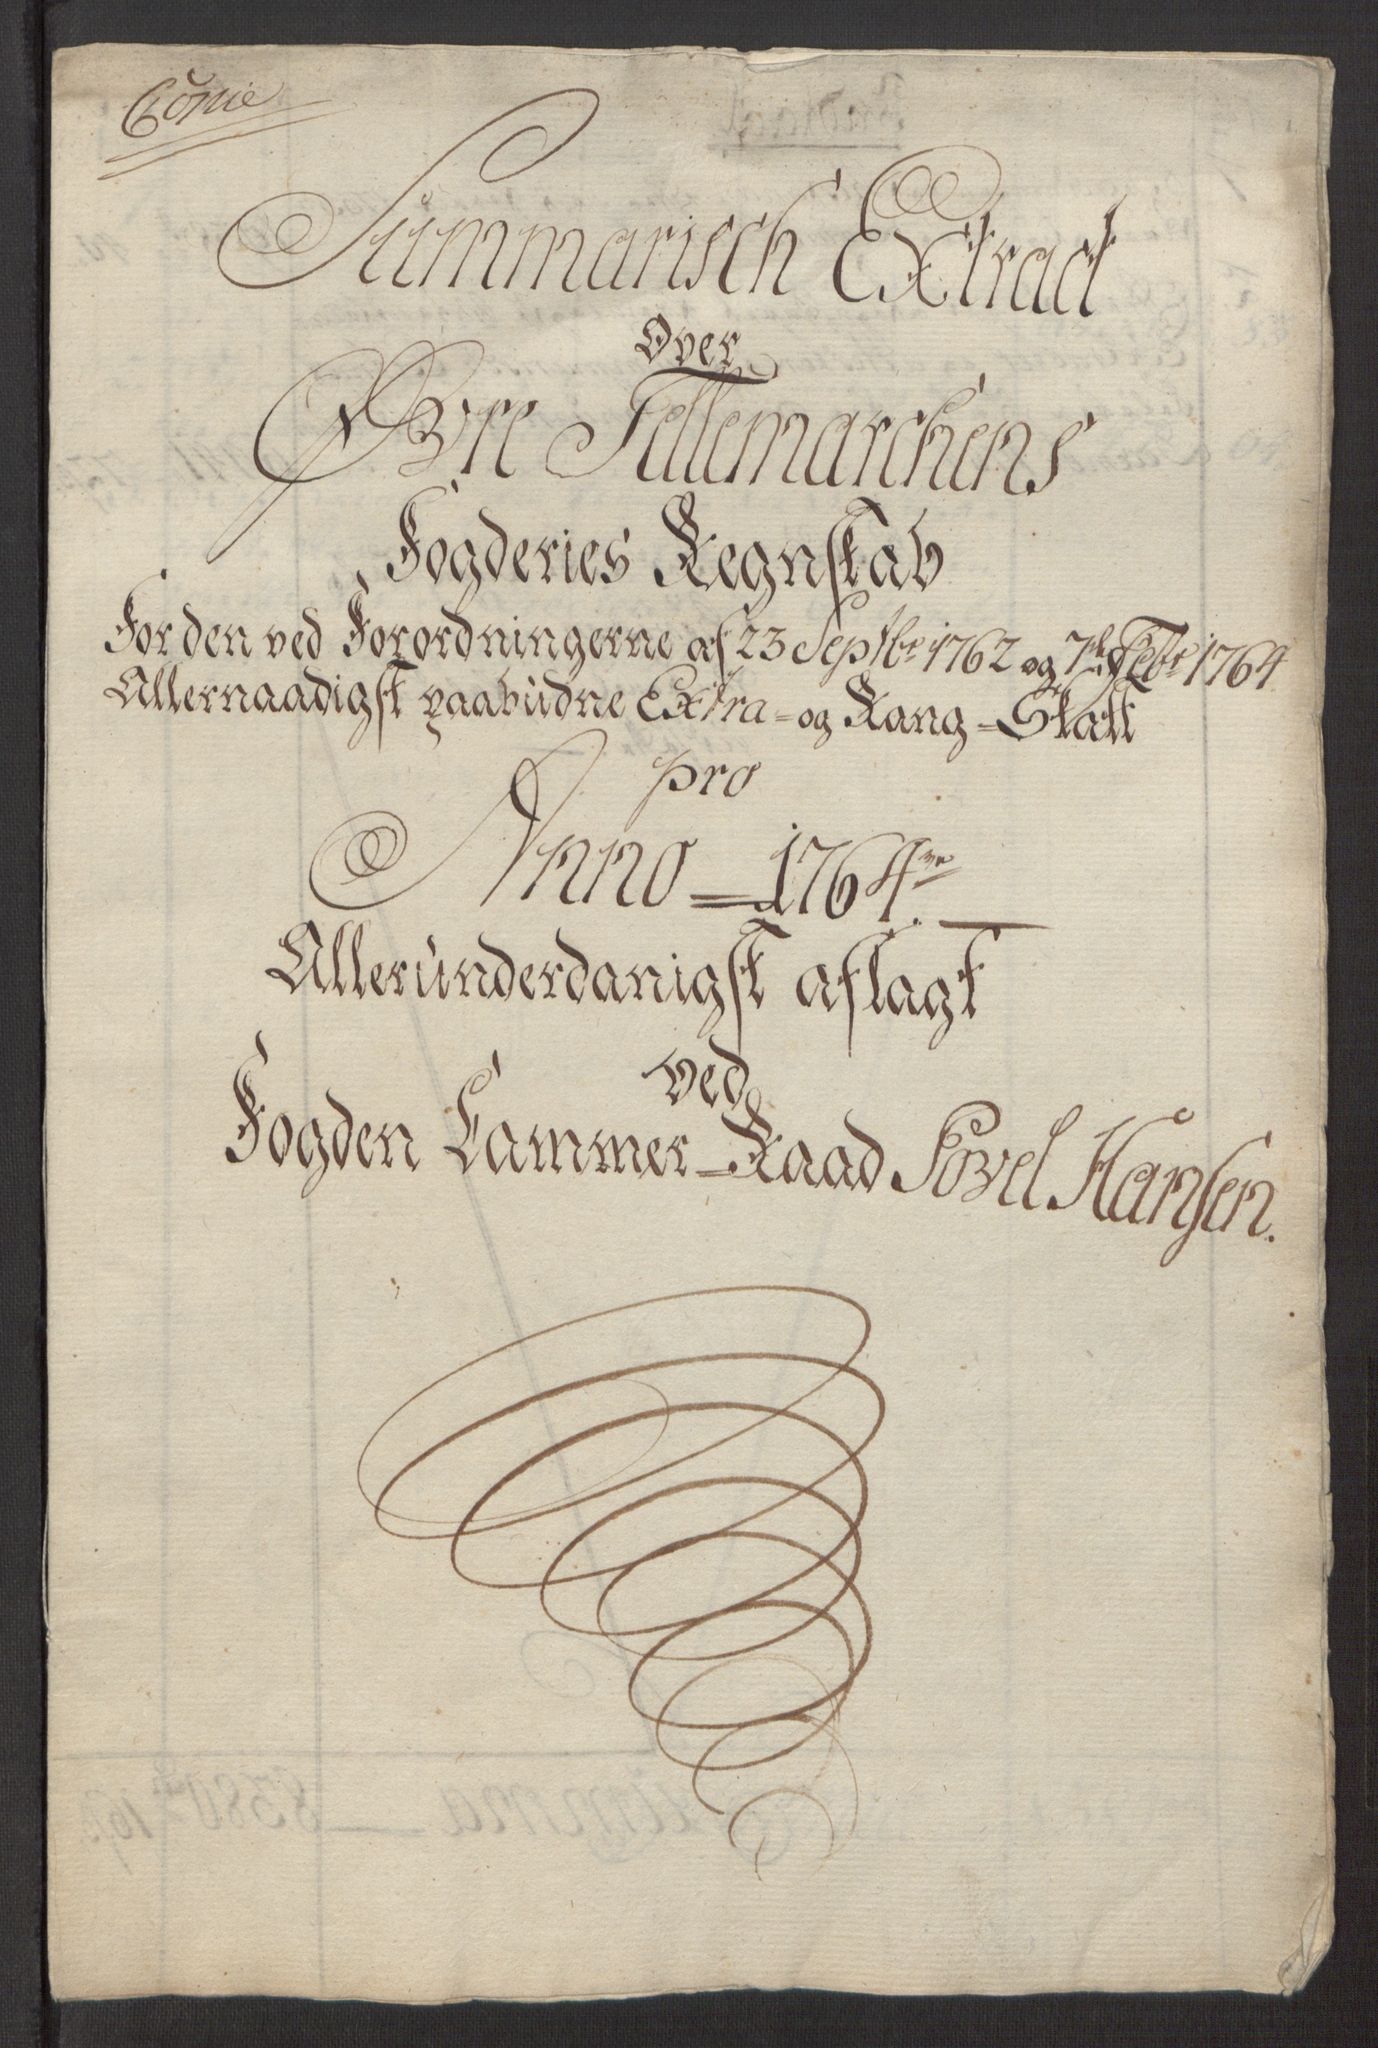 Copie
Summarisch Extract
Over
Øvre Tellemarchens
Fogderies Regnskab
For den ved Forordningerne af 23 Septbr 1762 og 7de Febr 1764
Allernaadigst paabudne Extra- og Rang-Skatt
pro
Anno 1764
Allerunderdanigst aflagt
ved
Fogden Cammer-Raad Povel Hansen.
Summa 8580 16